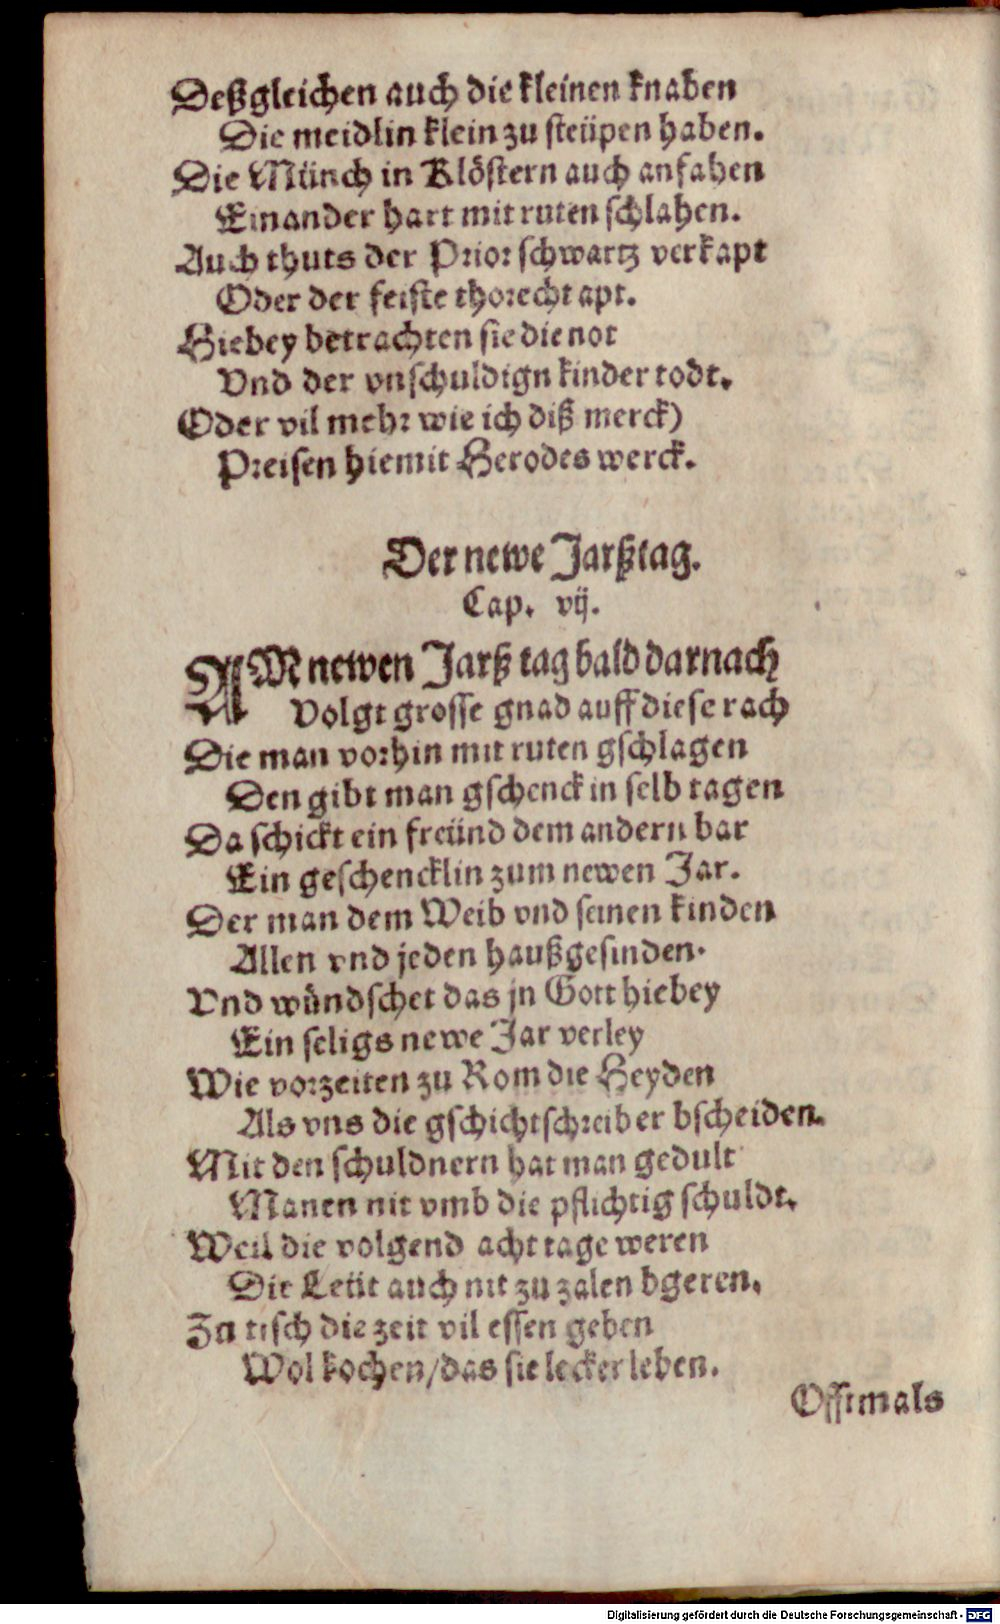 Deßgleichen auch die kleinen knaben
Die meidlin klein zu steüpen haben.
Die Münch in Klöstern auch anfahen
Einander hart mit ruten schlahen.
Auch thuts der Prior schwartz verkapt
Oder der feiste thorecht apt.
Hiebey betrachten sie die not
Vnd der vnschuldign kinder todt.
Oder vil mehr wie ich diß merck)
Preisen hiemit Herodes werck.
Der newe Jarßtag.
Cap. vij.
AM newen Jarß tag bald darnach
Volgt grosse gnad auff diese rach
Die man vorhin mit ruten gschlagen
Den gibt man gschenck in selb tagen
Da schickt ein freünd dem andern bar
Ein geschencklin zum newen Jar.
Der man dem Weib vnd seinen kinden
Allen vnd jeden haußgesinden.
Vnd wündschet das jn Gott hiebey
Ein seligs newe Jar verley
Wie vorzeiten zu Rom die Heyden
Als vns die gschichtschreiber bscheiden.
Mit den schuldnern hat man gedult
Manen nit vmb die pflichtig schuldt.
Weil die volgend acht tage weren
Die Leüt auch nit zu zalen bgeren.
Zu tisch die zeit vil essen geben
Wol kochen/das sie lecker leben.
Offtmals
Digitalisierung gefördert durch die Deutsche Forschungsgemeinschaft - DFG